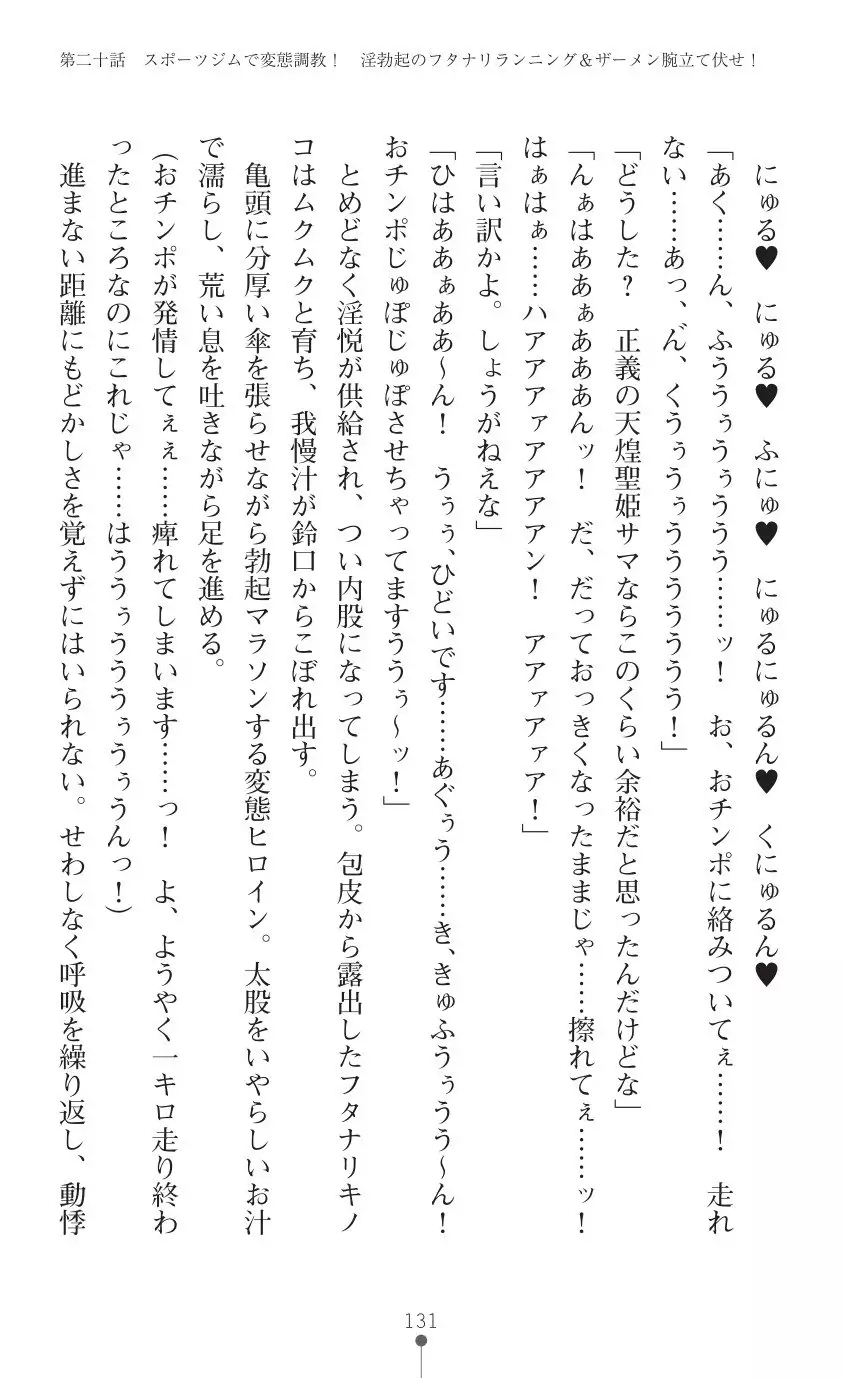 第二十話　スポーツジムで変態調教！　淫勃起のフタナリランニング＆ザーメン腕立て伏せ！
にゅる♥　にゅる♥　ふにゅ♥　にゅるにゅるん♥　くにゅるん♥
「あく……ん、ふううぅうぅううう……ッ！　お、おチンポに絡みついてぇ……！　走れ
ない……あっ、ん゛、くうぅうぅうううううう！」
「どうした？　正義の天煌聖姫サマならこのくらい余裕だと思ったんだけどな」
「んぁはああぁあああんッ！　だ、だっておっきくなったままじゃ……擦れてぇ……ッ！
はぁはぁ……ハアアアァアアアアン！　アアァアァア！」
「言い訳かよ。しょうがねえな」
「ひはああぁああ〜ん！　うぅぅ、ひどいです……あぐぅう……き、きゅふうぅうう〜ん！
おチンポじゅぽじゅぽさせちゃってますううぅ〜ッ！」
とめどなく淫悦が供給され、つい内股になってしまう。包皮から露出したフタナリキノ
コはムクムクと育ち、我慢汁が鈴口からこぼれ出す。
亀頭に分厚い傘を張らせながら勃起マラソンする変態ヒロイン。太股をいやらしいお汁
で濡らし、荒い息を吐きながら足を進める。
（おチンポが発情してぇぇ……痺れてしまいます……っ！　よ、ようやく一キロ走り終わ
ったところなのにこれじゃ……はううぅうううぅうぅうんっ！）
進まない距離にもどかしさを覚えずにはいられない。せわしなく呼吸を繰り返し、動悸
131